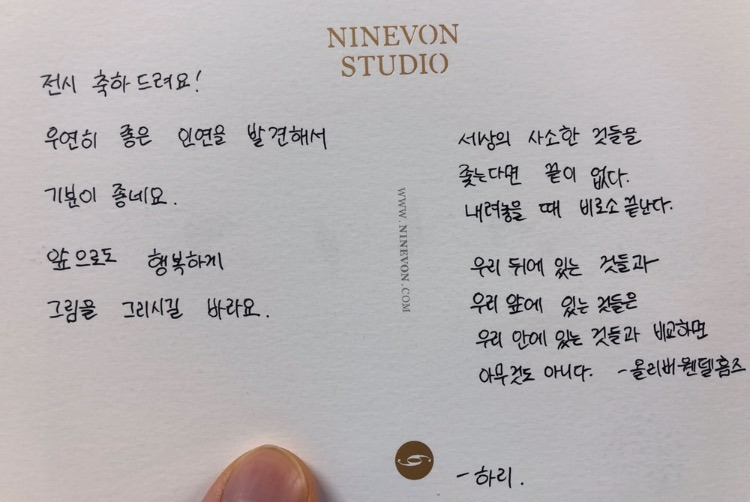 NINEVON
STUDIO
전시 축하 드려요!
우연히 좋은 인연을 발견해서
기분이 좋네요.
앞으로도 행복하게
그림을 그리시길 바라요.
WWW.NINEVON.COM
세상의 사소한 것들을
좇는다면 끝이 없다.
내려놓을 때 비로소 끝난다.
우리 뒤에 있는 것들과
우리 앞에 있는 것들은
우리 안에 있는 것들과 비교하면
아무것도 아니다. -올리버 웬델 홈즈
-하리.